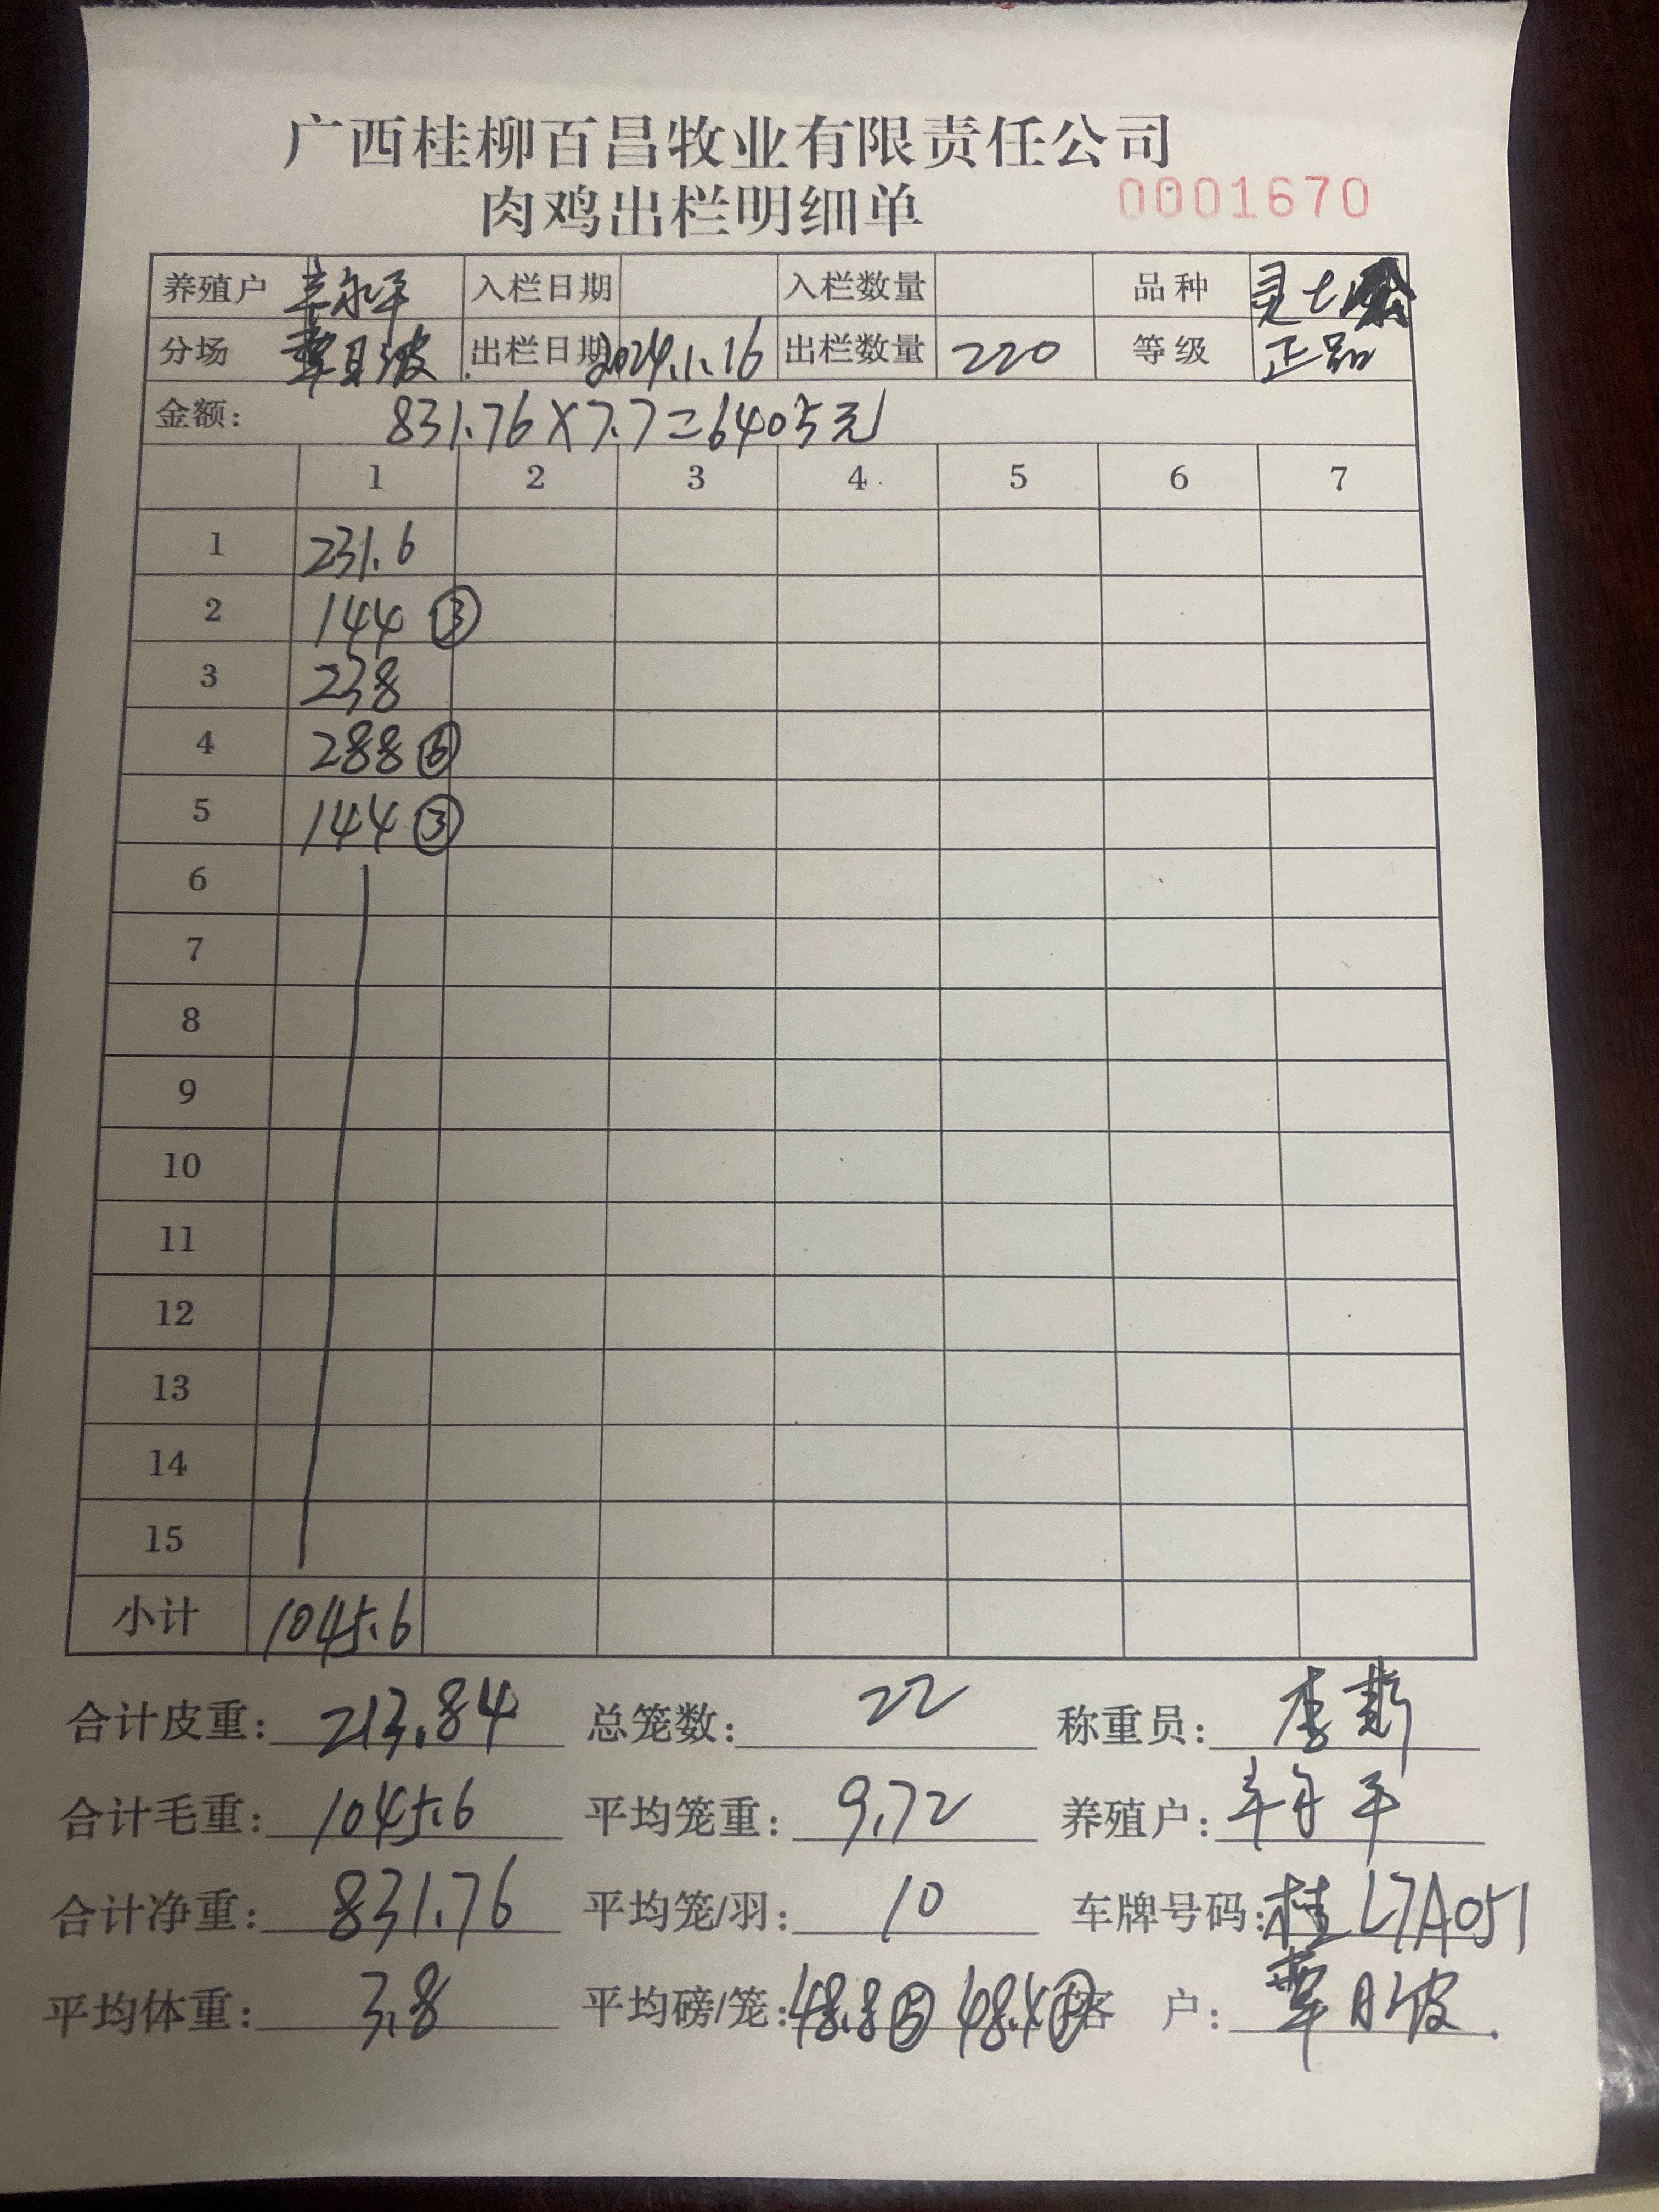 广西桂柳百昌牧业有限责任公司
肉鸡出栏明细单 0001670
养殖户 永平 入栏日期 入栏数量 品种 灵七
分场 覃月波 出栏日期 2024.1.16 出栏数量 220 等级 正品
金额: 831.76×7.7=6405元
1 2 3 4 5 6 7
1 231.6
2 144 ③
3 238
4 288 ⑥
5 144 ③
6
7
8
9
10
11
12
13
14
15
小计 1045.6
合计皮重: 213.84 总笼数: 22 称重员: 李
合计毛重: 1045.6 平均笼重: 9.72 养殖户: 平
合计净重: 831.76 平均笼/羽: 10 车牌号码: 桂L7A051
平均体重: 3.8 平均磅/笼: 48.8⑤ 48.4 客 户: 覃月波